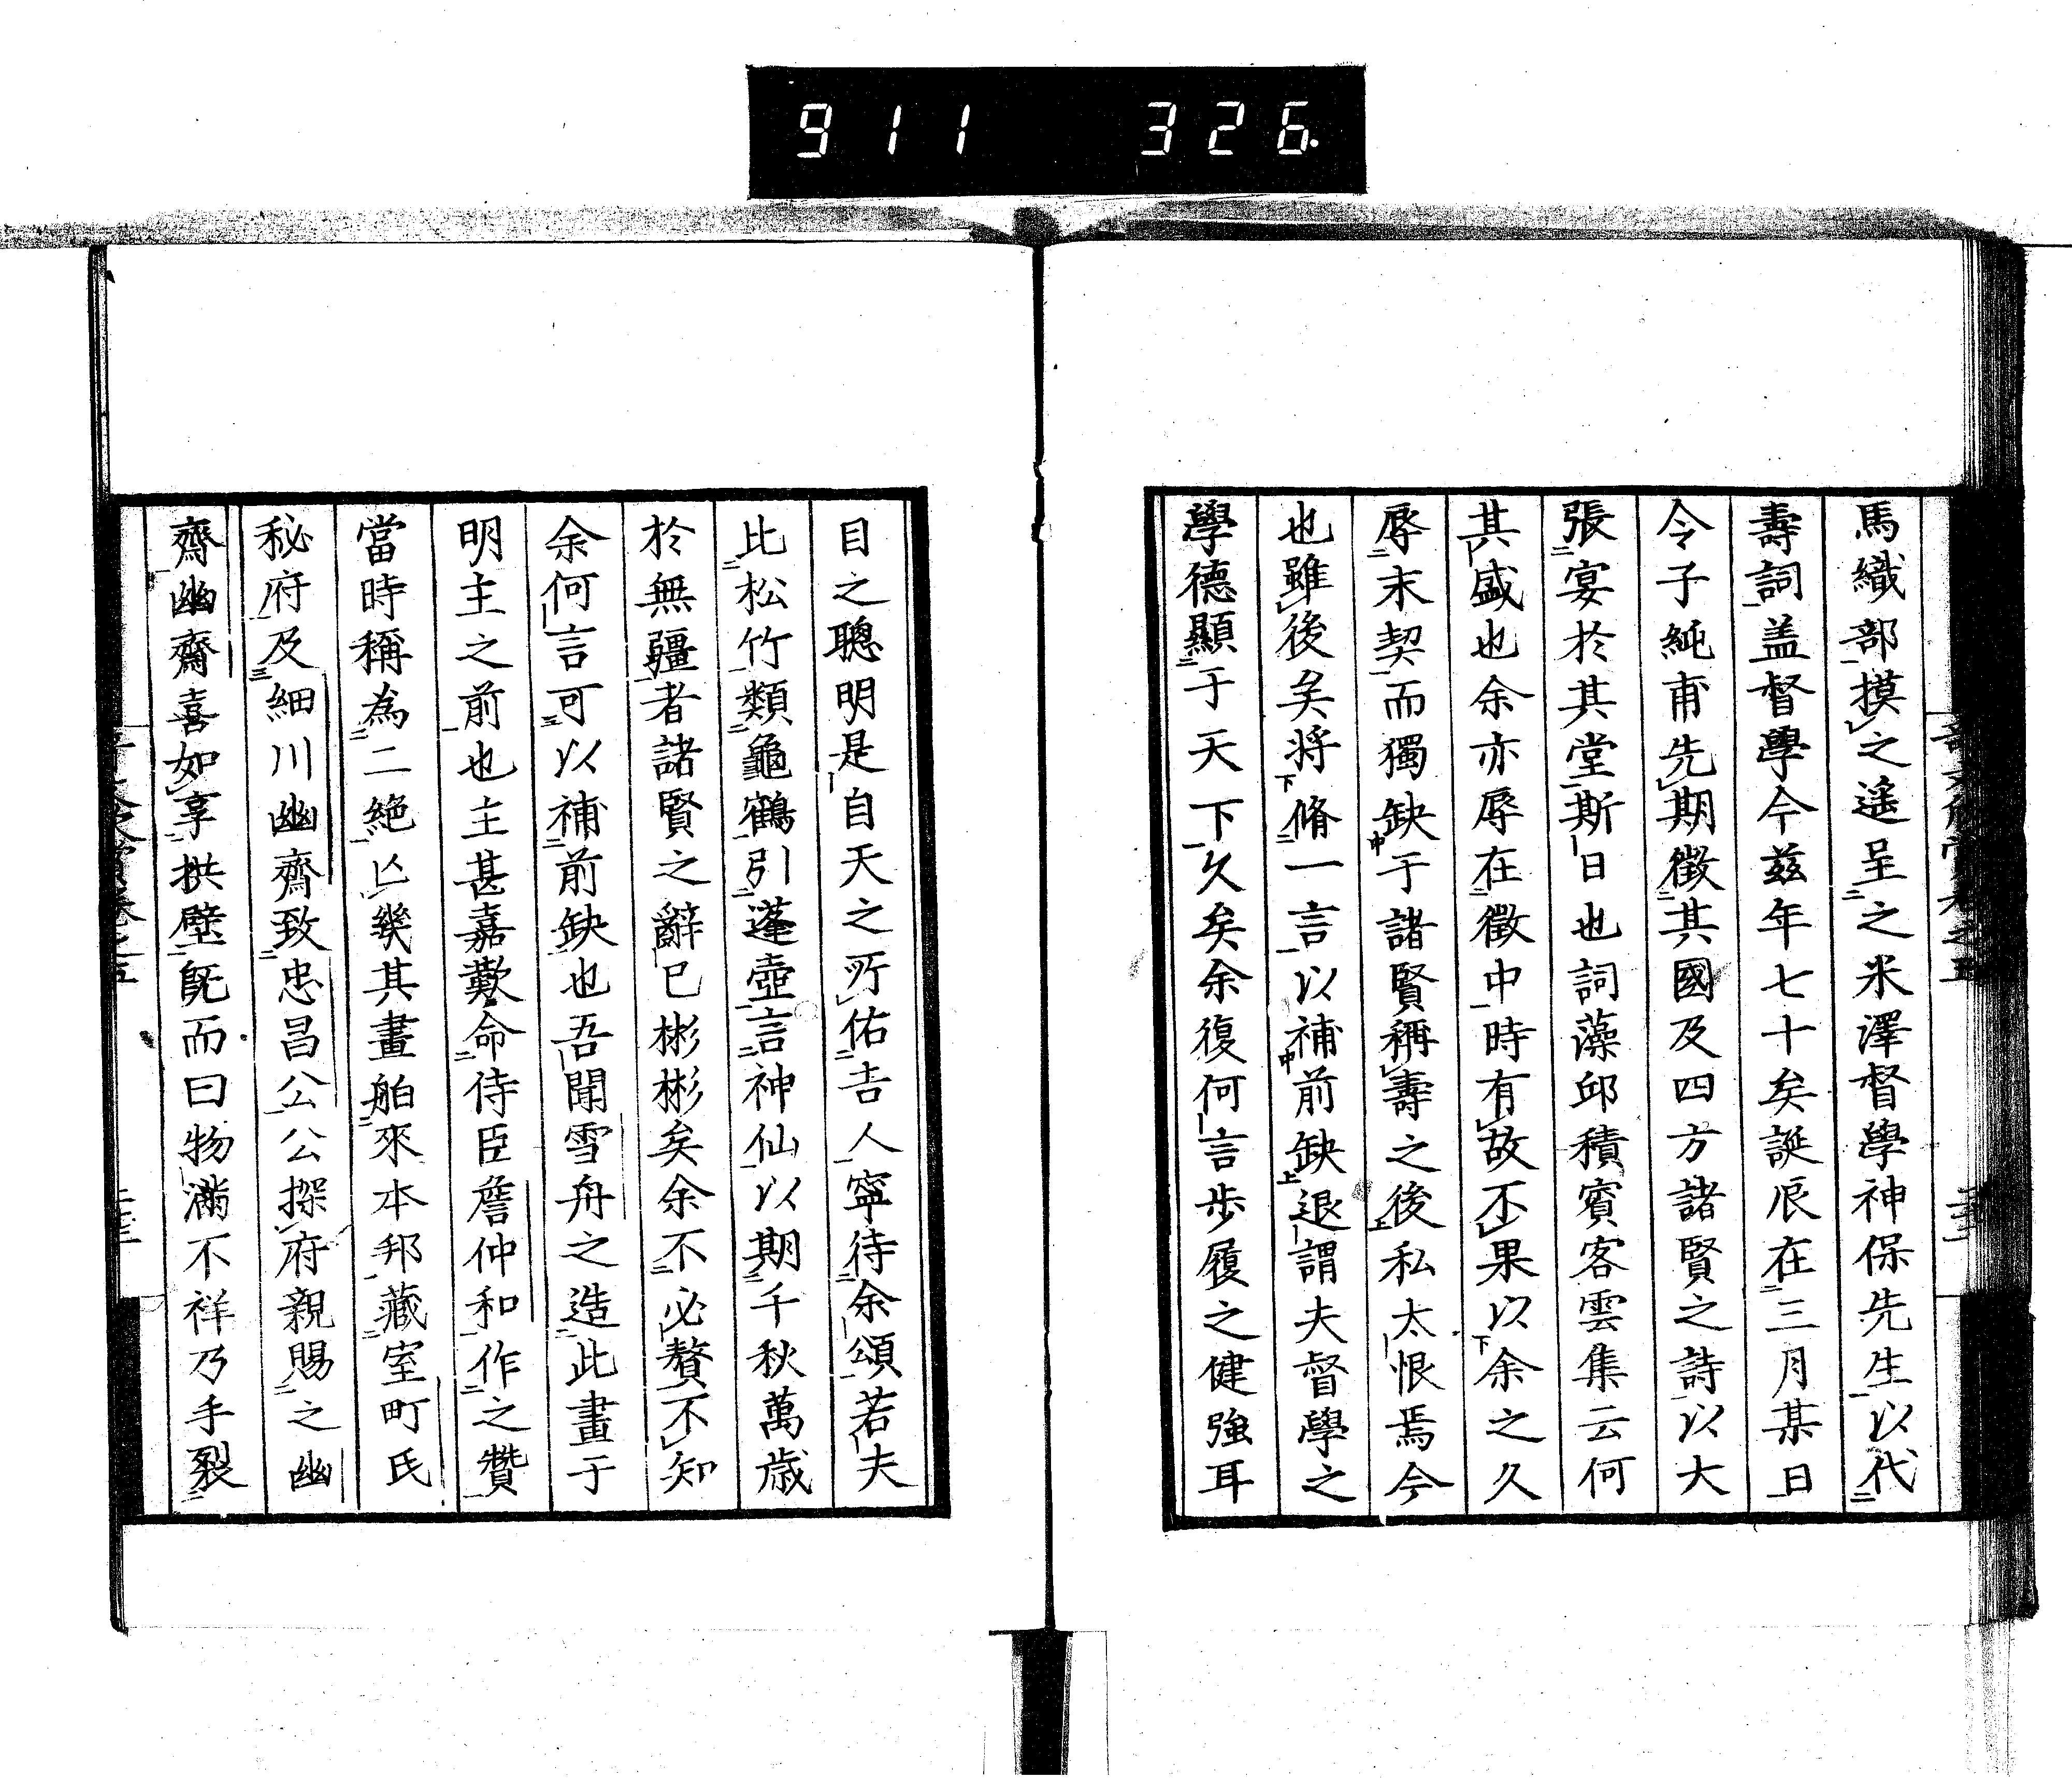 911 326.
馬織部摸之遙呈之米澤督學神保先生以代
壽詞盖督學今茲年七十矣誕辰在三月某日
令子純甫先期徴其國及四方諸賢之詩以大
張宴於其堂斯日也詞藻邱積賓客雲集云何
其盛也余亦辱在徴中時有故不果以余之久
辱末契而獨缺于諸賢稱壽之後私太恨焉今
也雖後矣将脩一言以補前缺退謂夫督學之
學德顯于天下久矣余復何言步履之健強耳
目之聰明是自天之所佑吉人寧待余頌若夫
比松竹類龜鶴引蓬壺言神仙以期千秋萬歳
於無疆者諸賢之辭已彬彬矣余不必贅不知
余何言可以補前缺也吾聞雪舟之造此畫于
明主之前也主甚嘉歎命侍臣詹仲和作之贊
當時稱為二絶亾幾其畫舶來本邦藏室町氏
秘府及細川幽齋致忠昌公公探府親賜之幽
齋幽齋喜如享拱璧既而曰物滿不祥乃手裂